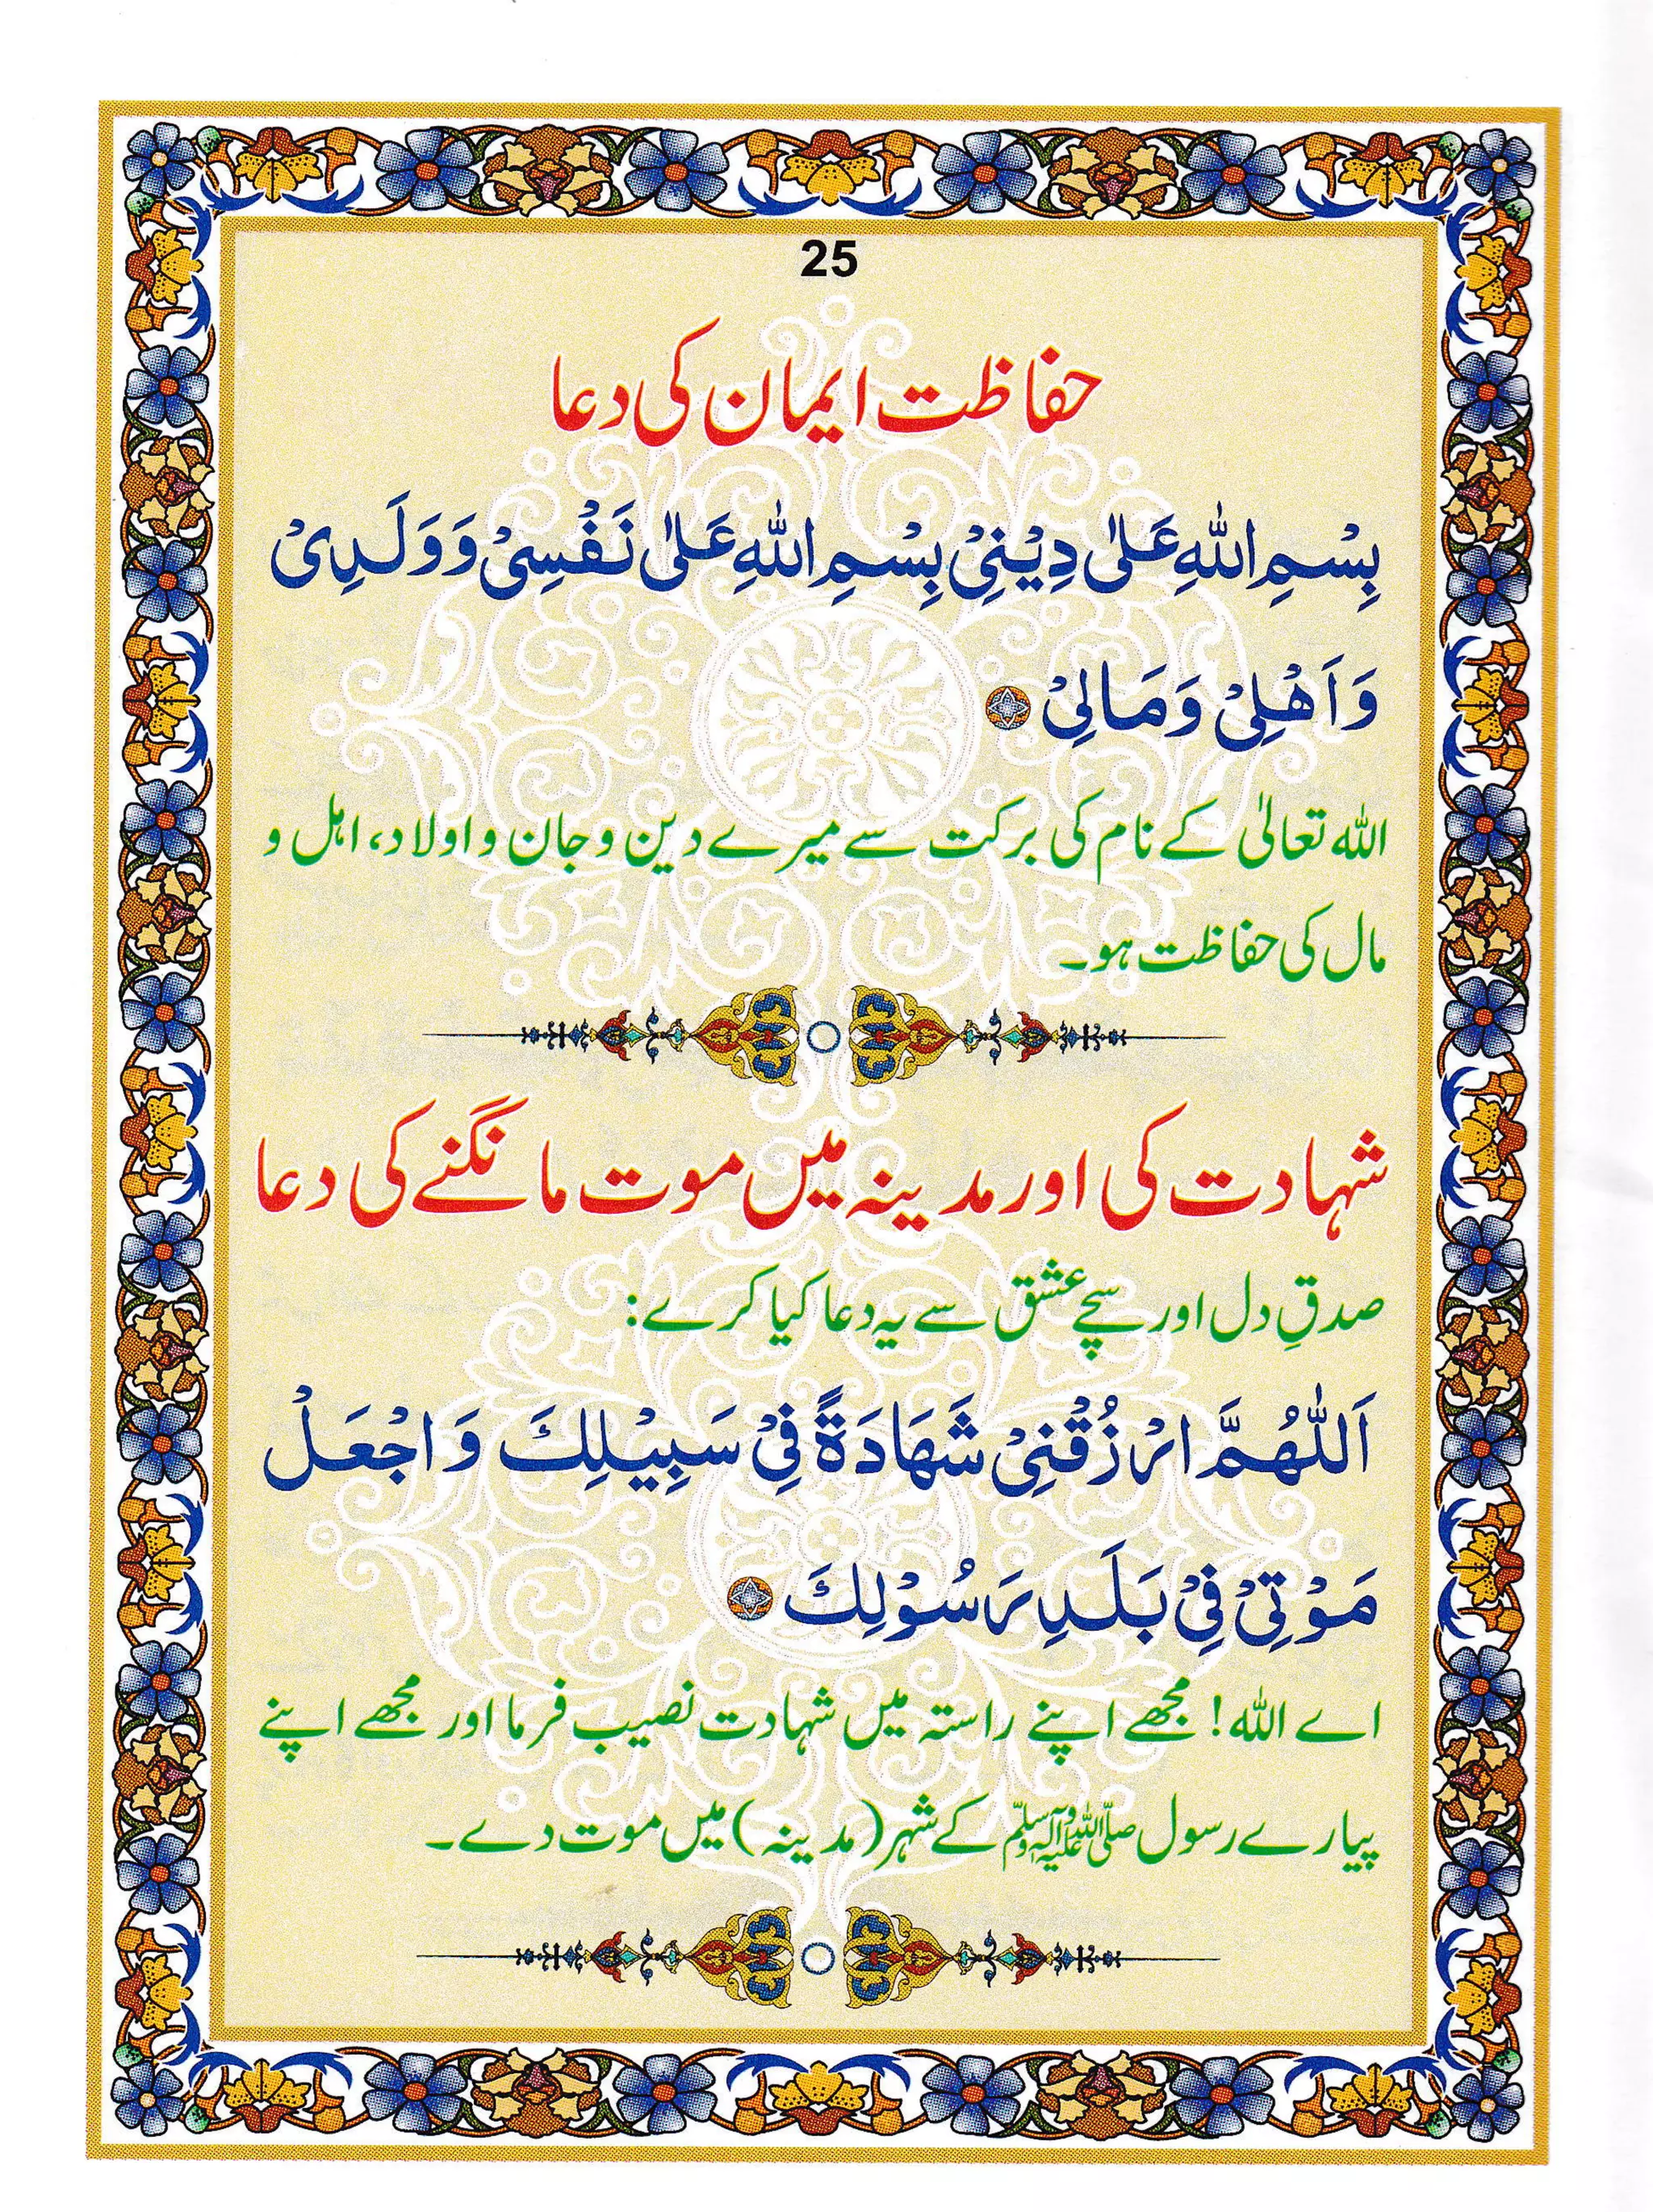 25
حفاظت ایمان کی دعا
بِسْمِ اللّٰهِ عَلٰى دِیْنِیْ بِسْمِ اللّٰهِ عَلٰى نَفْسِیْ وَوَلَدِیْ
وَاَهْلِیْ وَمَالِیْ
اللہ تعالیٰ کے نام کی برکت سے میرے دین و جان و اولاد، اہل و
مال کی حفاظت ہو۔
شہادت کی اور مدینہ میں موت مانگنے کی دعا
صدقِ دل اور سچے عشق سے یہ دعا کیا کرے:
اَللّٰهُمَّ ارْزُقْنِیْ شَهَادَةً فِیْ سَبِیْلِكَ وَاجْعَلْ
مَوْتِیْ فِیْ بَلَدِ رَسُوْلِكَ
اے اللہ! مجھے اپنے راستہ میں شہادت نصیب فرما اور مجھے اپنے
پیارے رسول صلی اللہ علیہ وآلہ وسلم کے شہر (مدینہ) میں موت دے۔